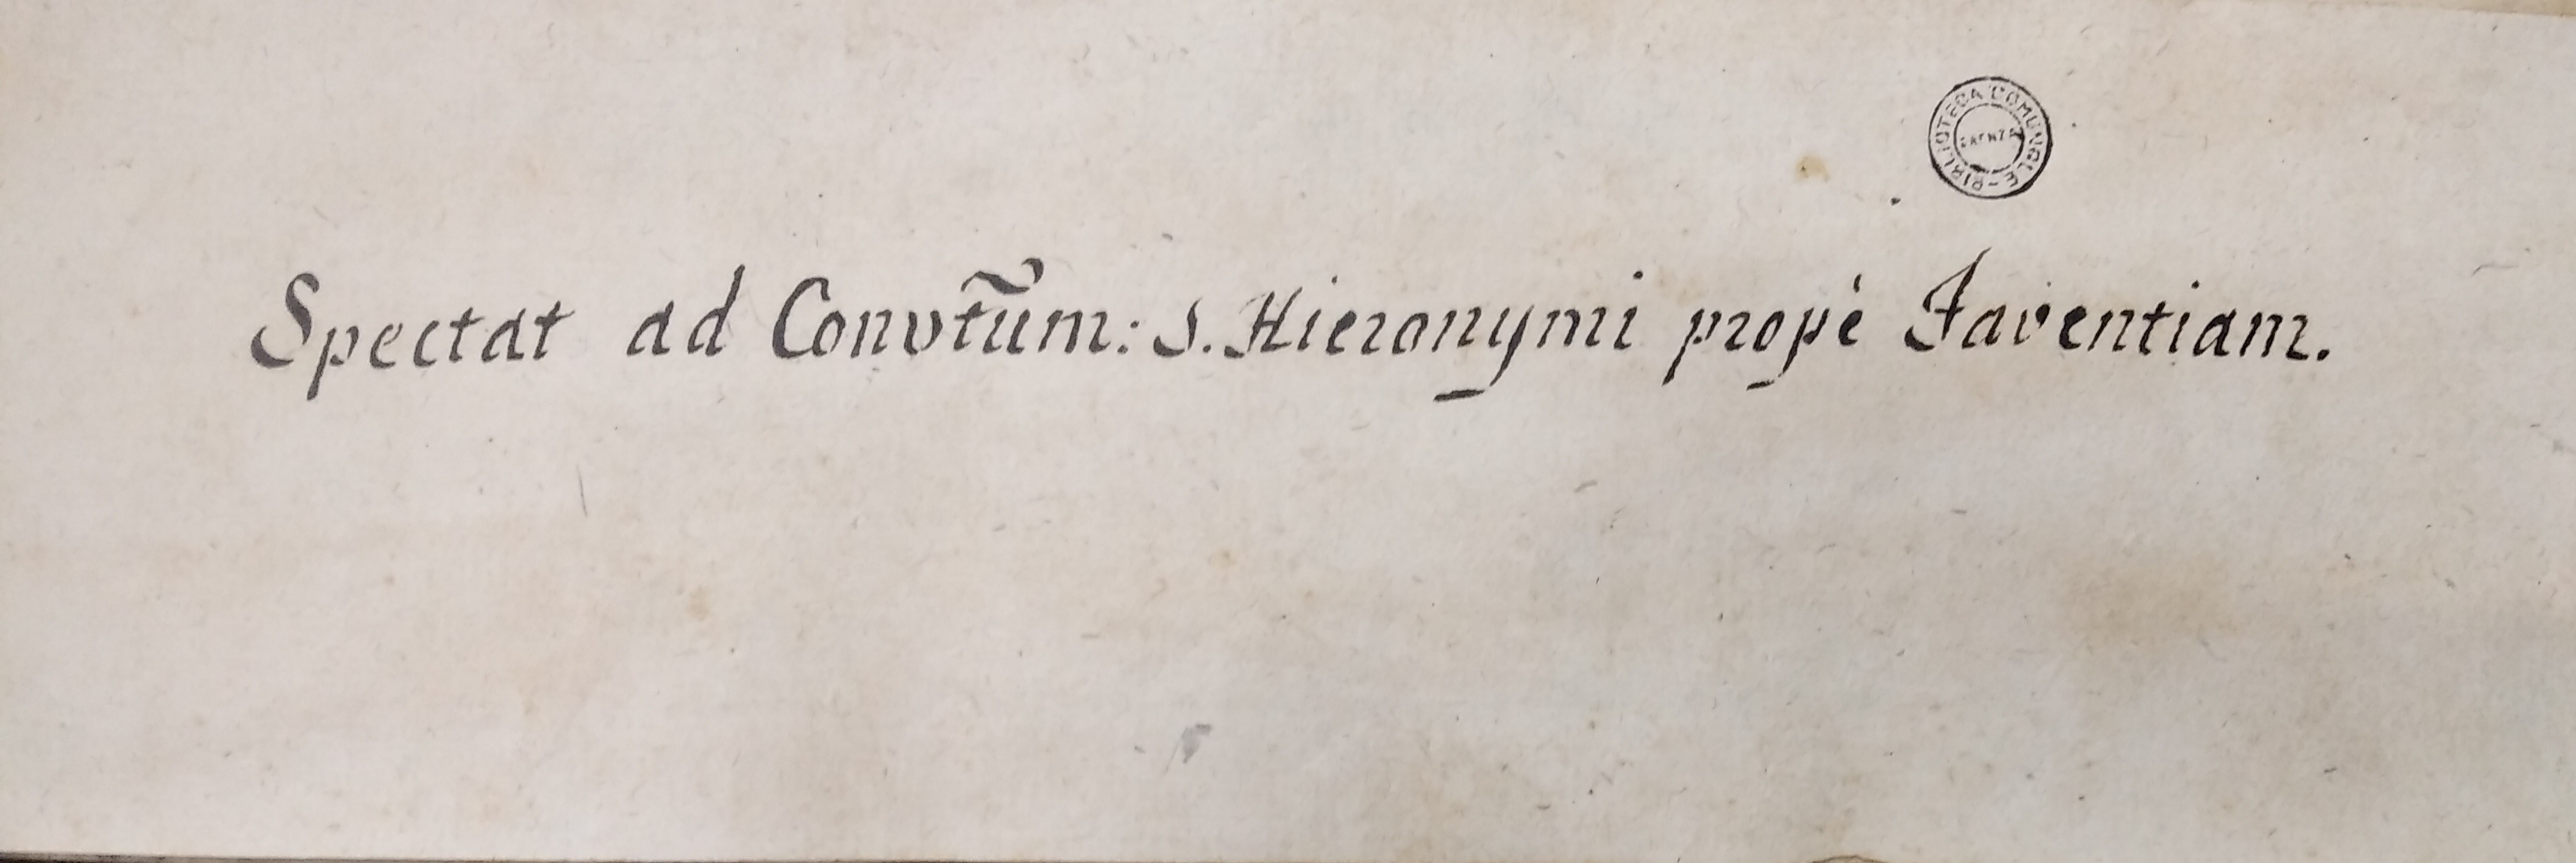 BIBLIOTECA COMUNALE - FAENZA
Spectat ad Convtũm: S. Hieronymi propè Faventiam.